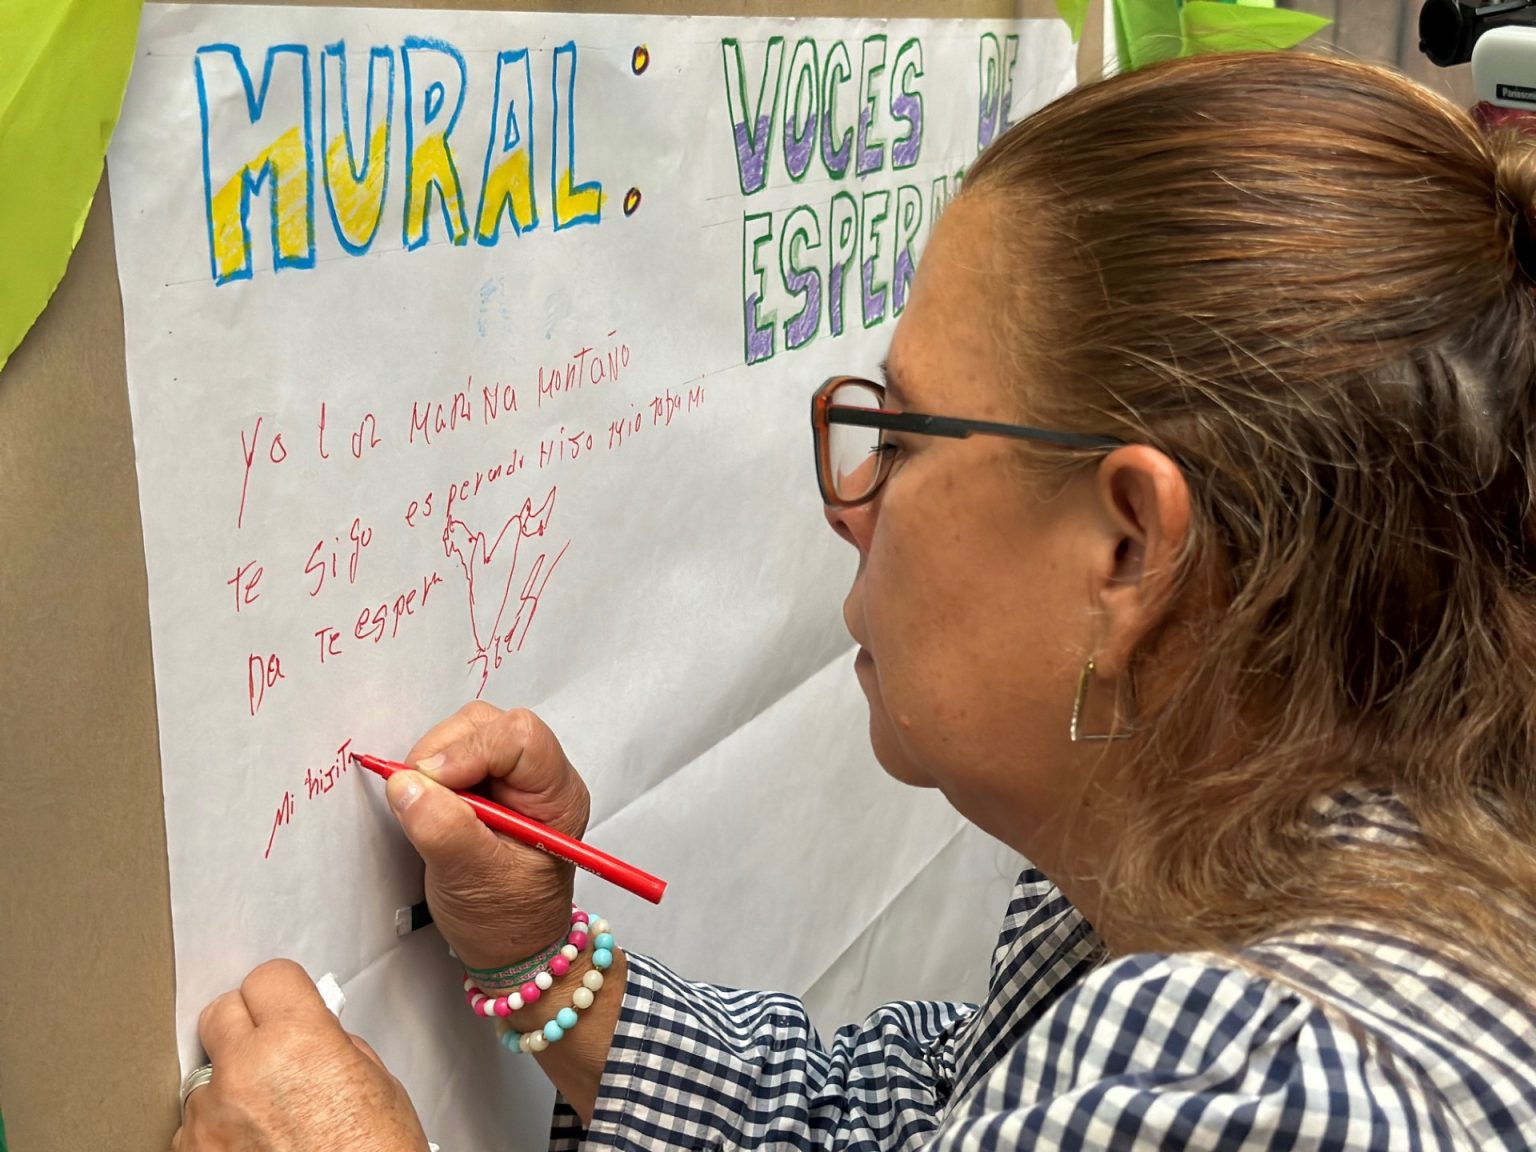 MURAL:
VOCES DE
ESPERA
Yo luz Marina Montaño
Te sigo esperando Hijo mio toda mi
Da Te espera
Mi hijiT
Panasonic